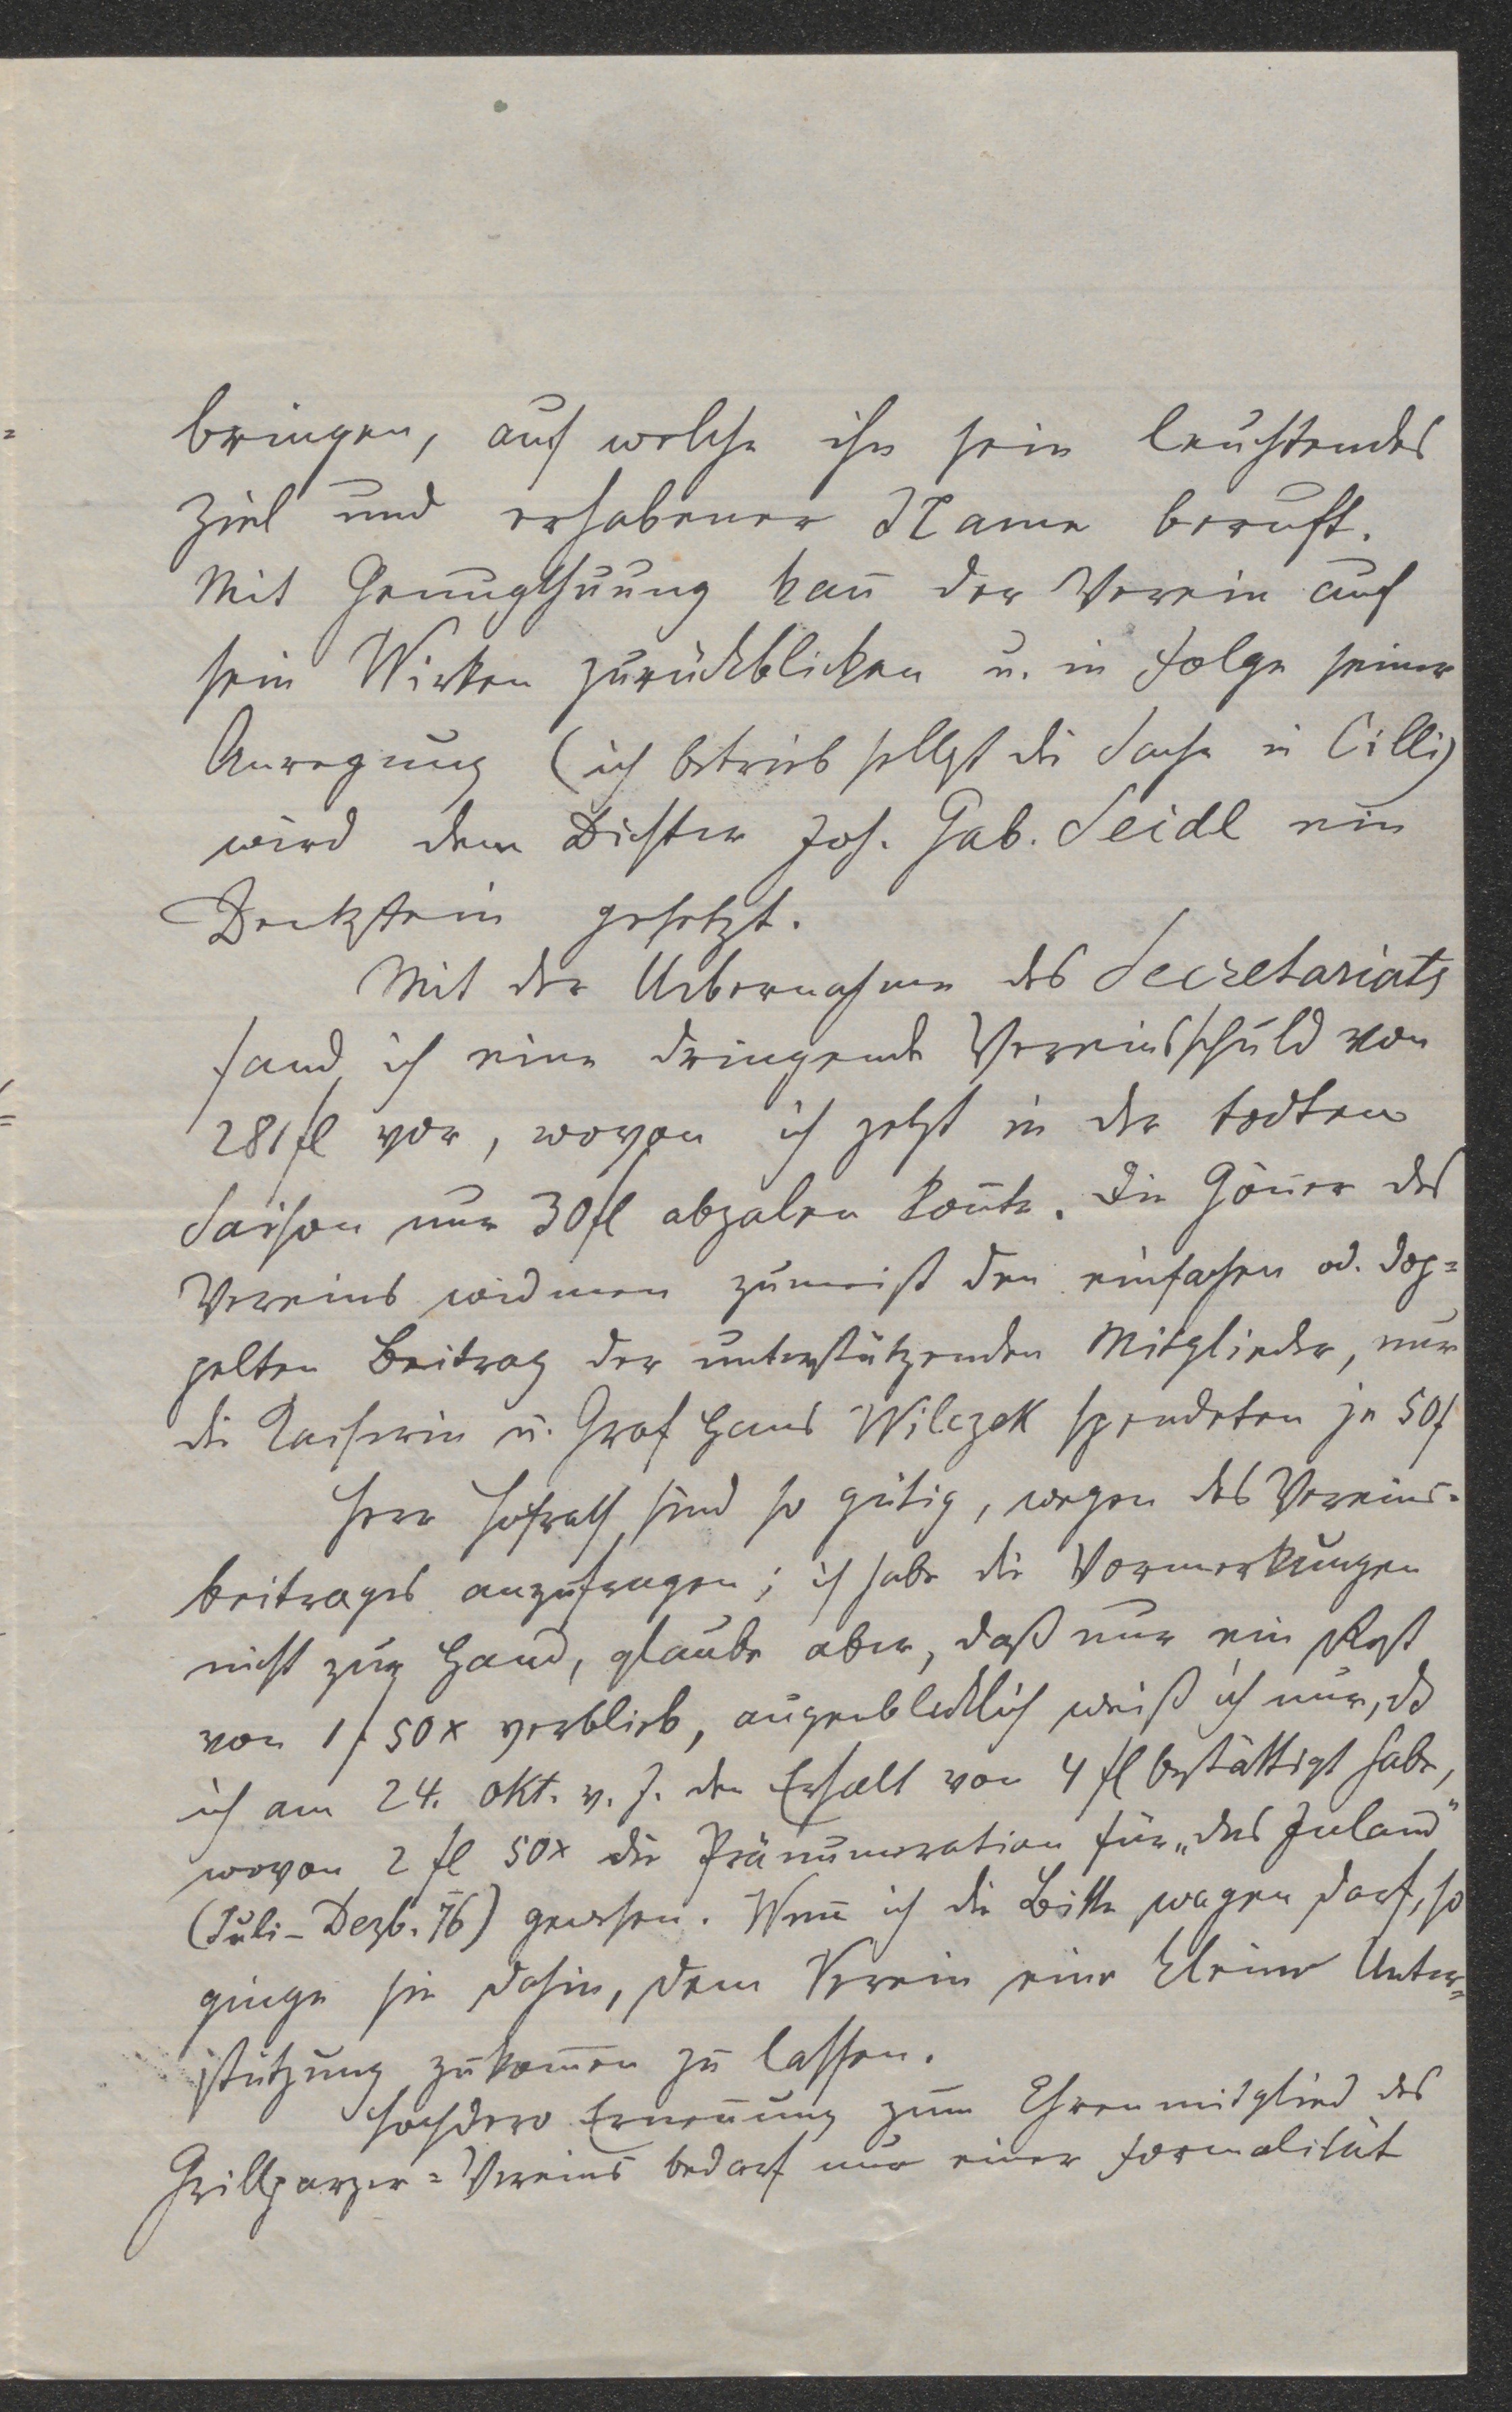 bringen, auf welche ihn sein leuchtendes
Ziel und erhabener Name beruft.
Mit Genugthuung kan̄ der Verein auf
sein Wirken zurückblicken u. in Folge seiner
Anregung (ich betrieb selbst die Sache in Cilli)
wird dem Dichter Joh. Gab. Seidl ein
Denkstein gesetzt.
Mit der Uebernahme des Secretariats
fand ich eine dringende Vereinsschuld von
281 fl vor, wovon ich jetzt in der todten
Saison nur 30 fl abzalen kon̄te. Die Gön̄er des
Vereins widmen zumeist den einfachen od. dop=
pelten Beitrag der unterstützenden Mitglieder, nur
die Kaiserin u. Graf Hans Wilczek spendeten je 50 f
Herr Hofrath sind so gütig, wegen des Vereins-
beitrages anzufragen; ich habe die Vormerkungen
nicht zur Hand, glaube aber, daß nur ein Rest
von 1 f 50 x verblieb, augenblicklich weiß ich nur, dß
ich am 24. Okt. v. J. den Erhalt von 4 fl bestättigt habe,
wovon 2 fl 50 x die Pränumeration für „das Inland"
(Juli - Dezb. 76) gewesen. Wen̄ ich die Bitte wagen darf, so
ginge sie dahin, dem Verein eine kleine Unter=
stützung zukom̄en zu lassen.
Hochdero Ernen̄ung zum Ehrenmitglied des
Grillparzer=Vereins bedarf nur einer Formalität